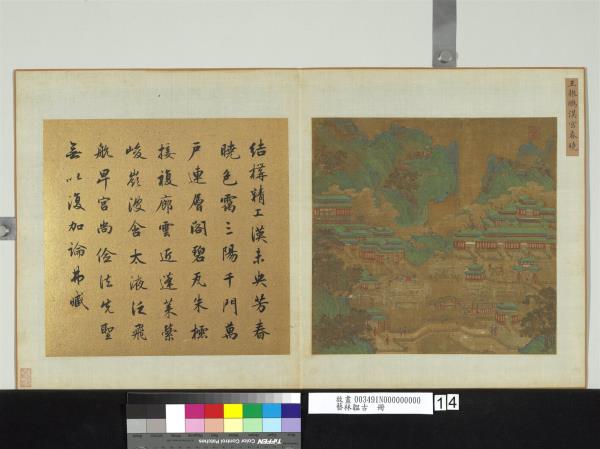 王振鵬漢宮春曉
結構精工漢未央芳春
曉色靄三陽千門萬
戶連層閣碧瓦朱櫺
接複廊雲近蓬萊縈
峻嶺波含太液泛飛
航卑宮尚儉法先聖
無以復加論弗臧
故畫 003491N000000000
藝林韞古 冊
14
TIFFEN Color Control Patches